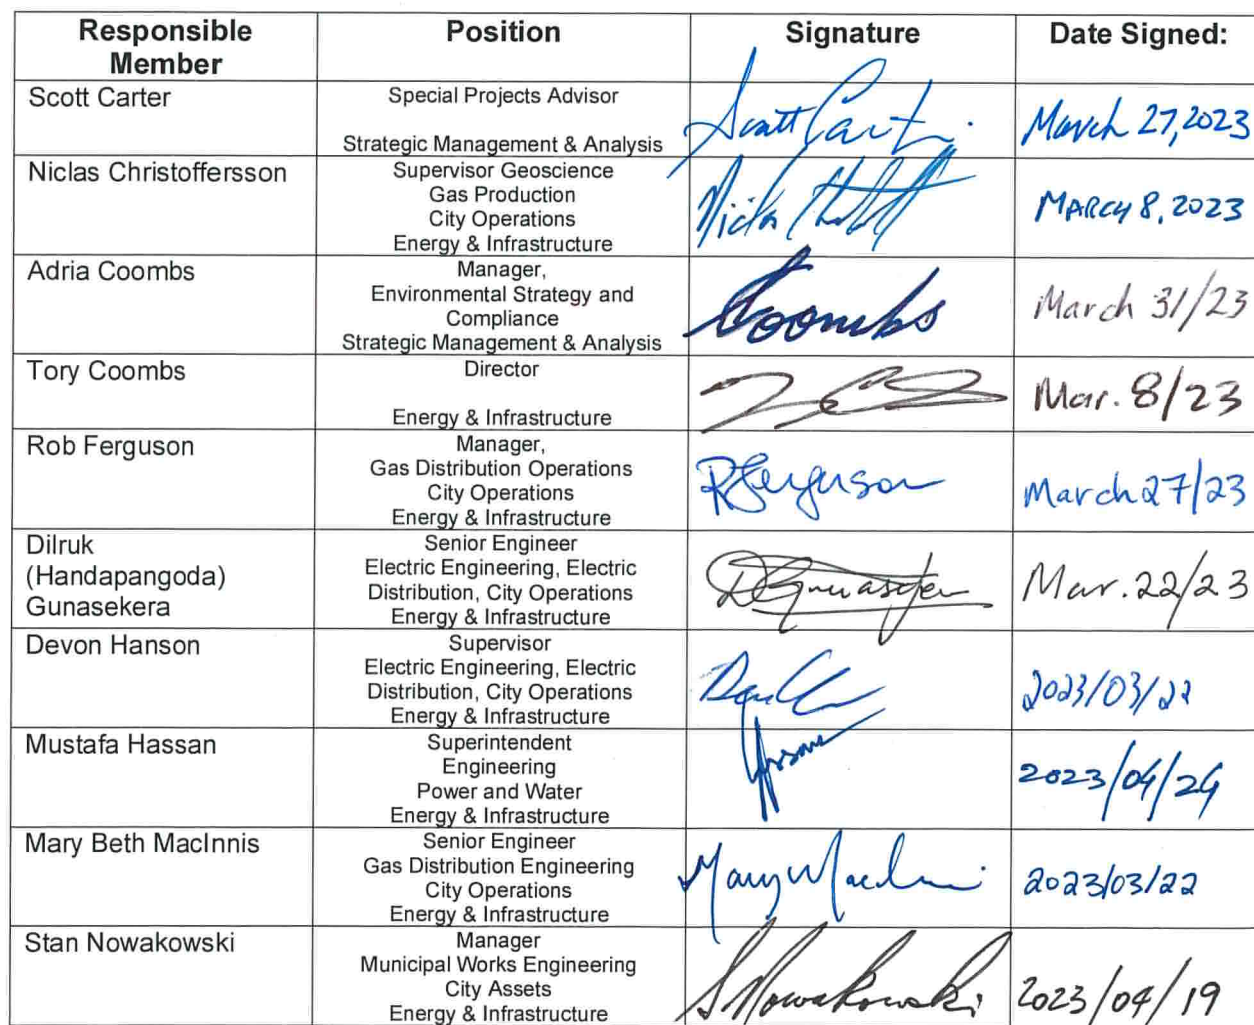 Responsible Member
Position
Signature
Date Signed:
Scott Carter
Special Projects Advisor
Strategic Management & Analysis
Scott Carter
March 27, 2023
Niclas Christoffersson
Supervisor Geoscience
Gas Production
City Operations
Energy & Infrastructure
March 8, 2023
Adria Coombs
Manager,
Environmental Strategy and
Compliance
Strategic Management & Analysis
Coombs
March 31/23
Tory Coombs
Director
Energy & Infrastructure
Mar. 8/23
Rob Ferguson
Manager,
Gas Distribution Operations
City Operations
Energy & Infrastructure
RFerguson
March 27/23
Dilruk
(Handapangoda)
Gunasekera
Senior Engineer
Electric Engineering, Electric
Distribution, City Operations
Energy & Infrastructure
Mar. 22/23
Devon Hanson
Supervisor
Electric Engineering, Electric
Distribution, City Operations
Energy & Infrastructure
2023/03/22
Mustafa Hassan
Superintendent
Engineering
Power and Water
Energy & Infrastructure
2023/04/24
Mary Beth MacInnis
Senior Engineer
Gas Distribution Engineering
City Operations
Energy & Infrastructure
2023/03/22
Stan Nowakowski
Manager
Municipal Works Engineering
City Assets
Energy & Infrastructure
S Nowakowski
2023/04/19